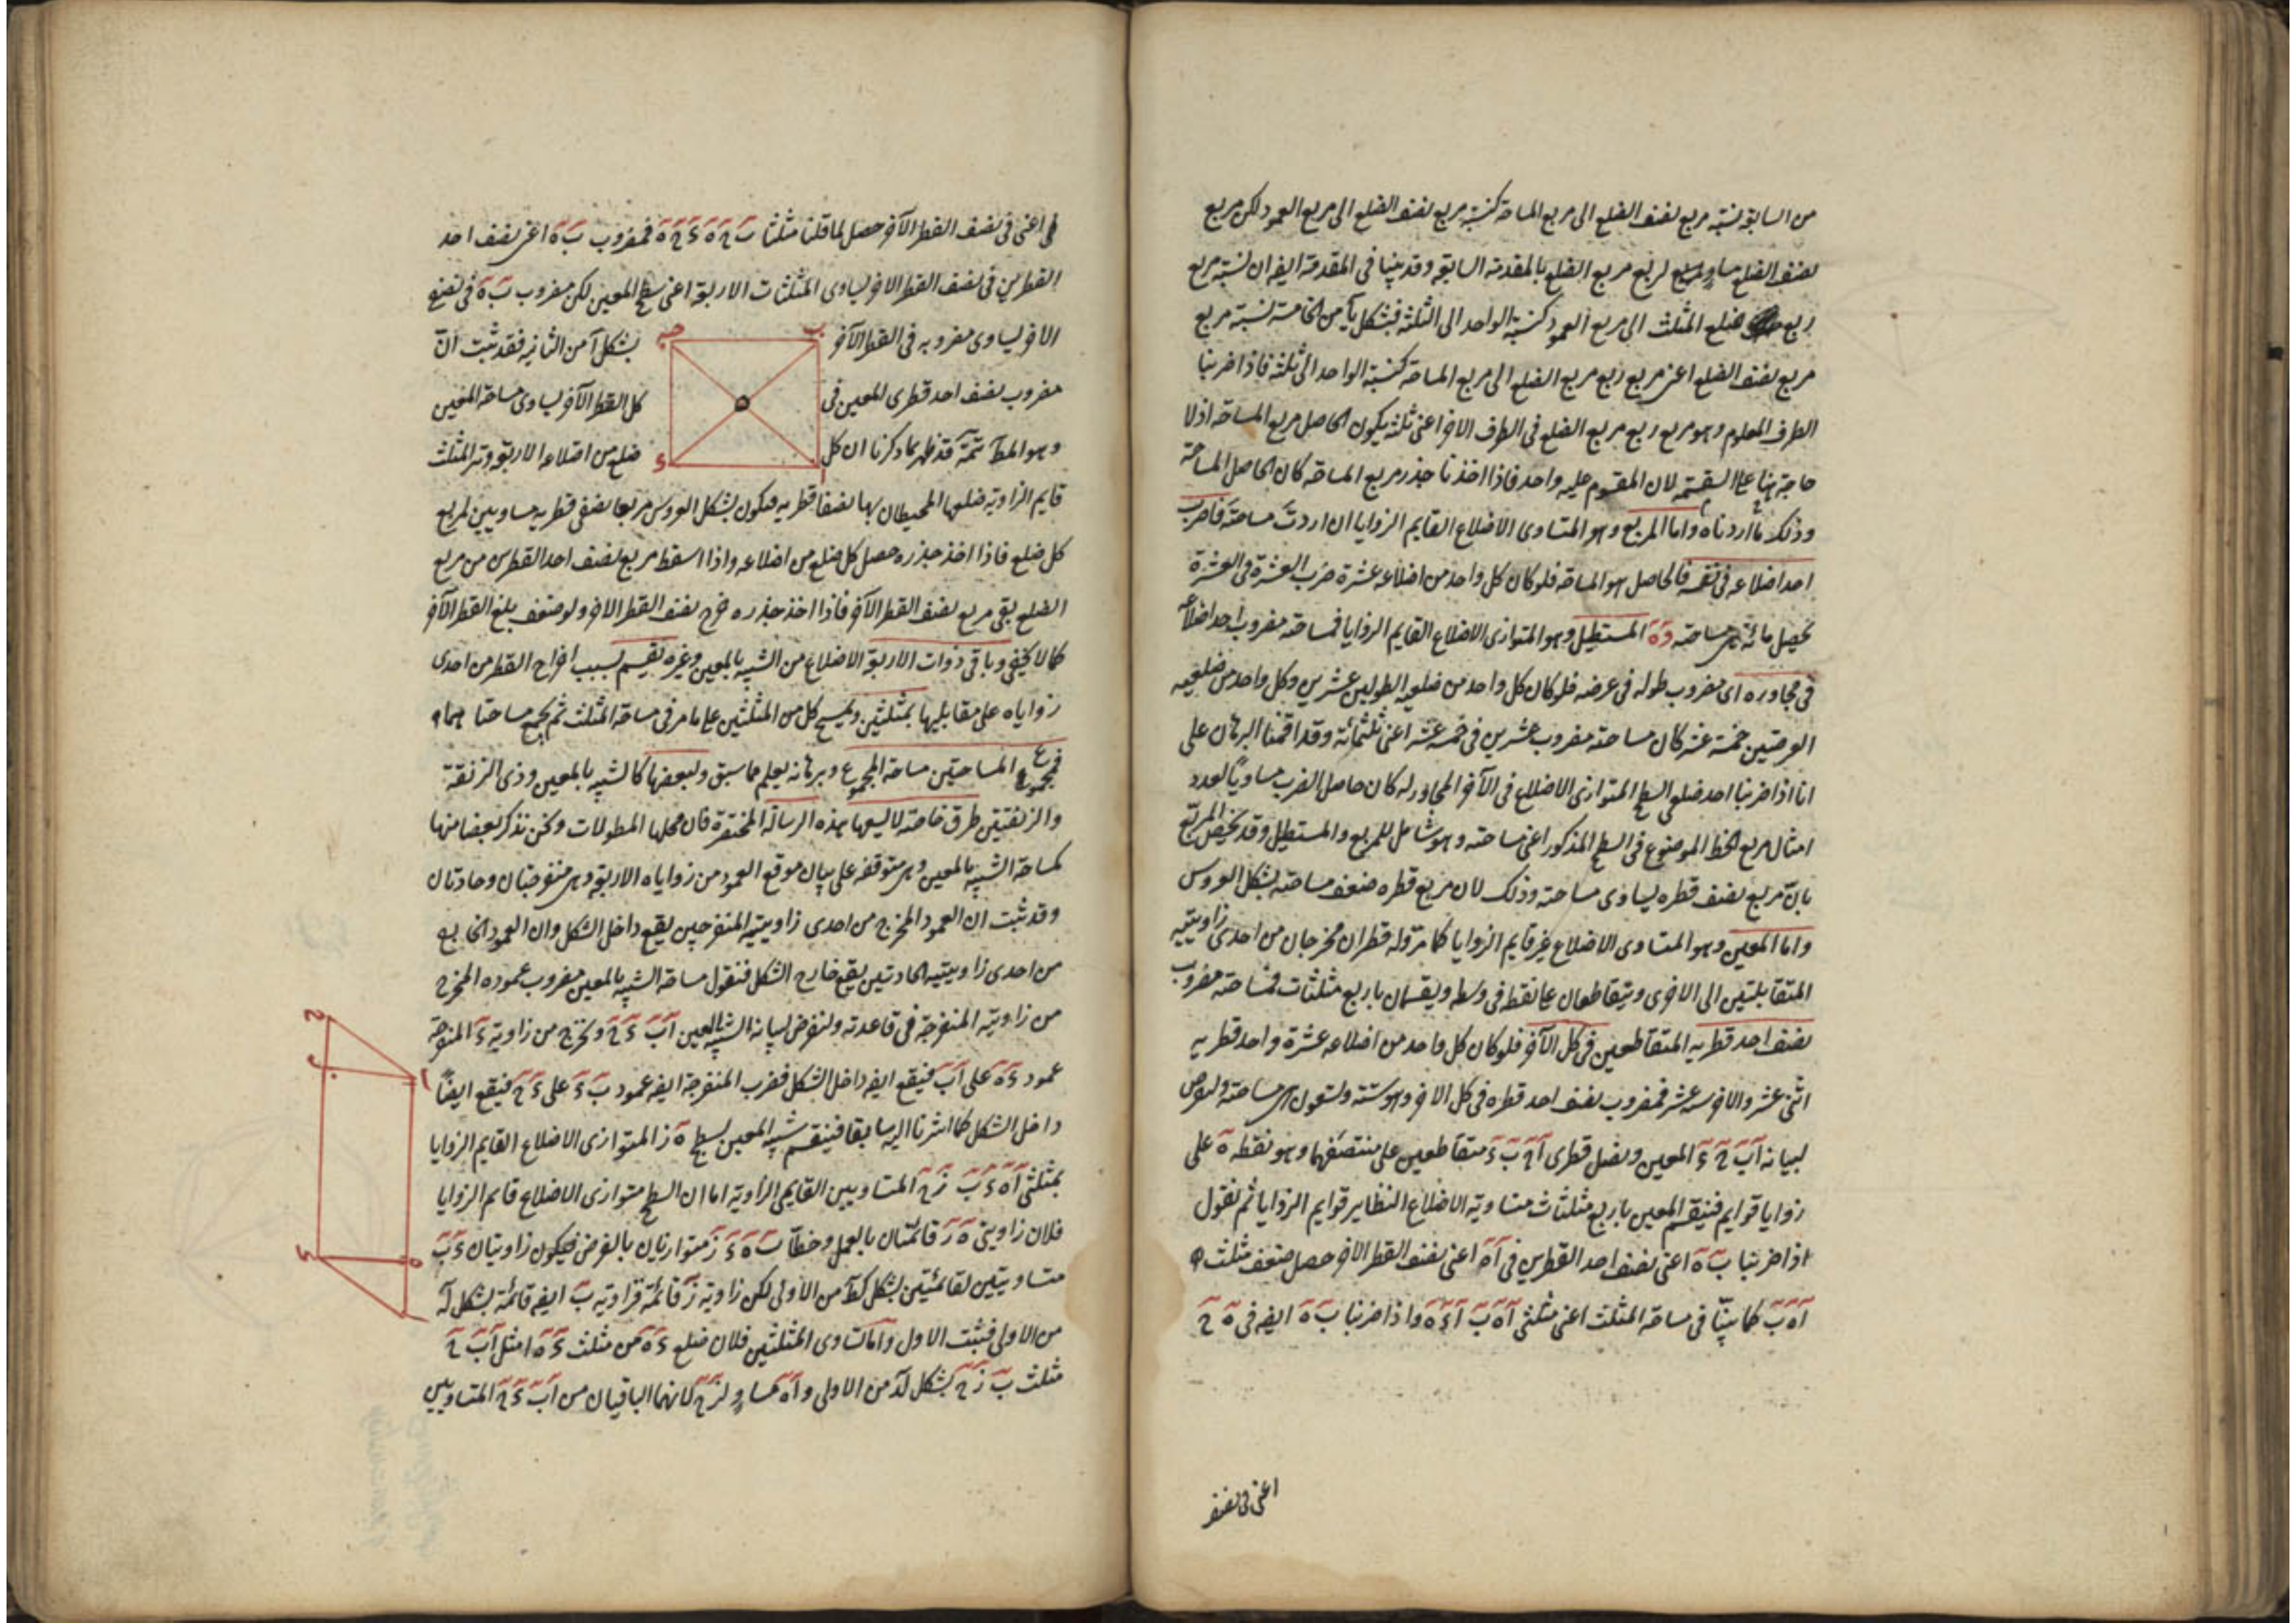 من السابق نسبة مربع نصف الضلع الى مربع المساحة كنسبة مربع نصف الضلع الى مربع العمود لكن مربع
نصف الضلع مساو لربع مربع الضلع بالمقدمة السابقة وقد بينا فى المقدمة ايضا ان نسبة مربع
ربع ضلع المثلث الى مربع العمود كنسبة الواحد الى الثلثة فبشكل يآ من الخامسة نسبة مربع
مربع نصف الضلع اعنى مربع ربع مربع الضلع الى مربع المساحة كنسبة الواحد الى ثلثة فاذا ضربنا
الطرف المعلوم وهو مربع ربع مربع الضلع فى الطرف الاخر اعنى ثلثة يكون الحاصل مربع المساحة اذ لا
حاجة هنا على القسمة لان المقسوم عليه واحد فاذا اخذنا جذر مربع المساحة كان الحاصل المساحة
وذلك ما اردناه واما المربع وهو المتساوى الاضلاع القايم الزوايا ان اردت مساحته فاضرب
احد اضلاعه فى نفسه فالحاصل هو المساحة فلو كان كل واحد من اضلاعه عشرة ضرب العشرة فى العشرة
يحصل مائة هى مساحته وة المستطيل وهو المتوازى الاضلاع القايم الزوايا فمساحته مضروب احد اضلاعه
فى مجاوره اى مضروب طوله فى عرضه فلو كان كل واحد من ضلعيه الطولين عشرين وكل واحد من ضلعيه
العرضين خمسة عشر كان مساحته مضروب عشرين فى خمسة عشر اعنى ثلثمائة وقد اقمنا البرهان على
انا اذا ضربنا احد ضلعى السطح المتوازى الاضلاع فى الآخر المجاور له كان حاصل الضرب مساويا لعدد
امثال مربع الخط الموضوع فى السطح المذكور اعنى مساحته وهو شامل للمربع والمستطيل وقد يخص المربع
بان مربع نصف قطره يساوى مساحته وذلك لان مربع قطره ضعف مساحته بشكل العروس
واما المعين وهو المتساوى الاضلاع غير قايم الزوايا كما مر وله قطران مخرجان من احدى زاويتيه
المتقابلتين الى الاخرى ويتقاطعان على نقطة فى وسطه ويقسمان باربع مثلثات فمساحته مضروب
نصف احد قطريه المتقاطعين فى كل الآخر فلو كان كل واحد من اضلاعه عشرة واحد قطريه
اثنى عشر والاخر ستة عشر فمضروب نصف احد قطره فى كل الاخر وهو ستة وتسعون هى مساحته ولنفرض
لبيانه آب حء المعين ونصل قطرى آح بء متقاطعين على منتصفهما وهو نقطة ة على
زوايا قوايم فينقسم المعين باربع مثلثات متساوية الاضلاع النظاير قوايم الزوايا ثم نقول
اذا ضربنا بة اعنى نصف احد القطرين فى آة اعنى نصف القطر الاخر حصل ضعف مثلث
آة ب كما بينا فى مساحة المثلث اعنى مثلثى آة ب آء ة واذا ضربنا بة ايضا فى ة ح
اعنى فى نصف
اعنى فى نصف القطر الآخر حصل لما قلنا مثلثا ب ح ة ء ح ة فمضروب بة اعنى نصف احد
القطرين فى نصف القطر الاخر يساوى المثلثات الاربعة اعنى سطح المعين لكن مضروب بة فى نصف
الاخر يساوى مضروبه فى القطر الآخر بشكل آ من الثانية فقد ثبت ان
مضروب نصف احد قطرى المعين فى كل القطر الآخر يساوى مساحة المعين
وهو المط تتمة قد ظهر مما ذكرنا ان كل ضلع من اضلاعه الاربعة وتر المثلث
ب
ح
ا
ء
قايم الزاوية ضلعها المحيطان بها نصفا قطريه فيكون بشكل العروس مربعا نصفى قطريه مساويين لمربع
كل ضلع فاذا اخذ جذره حصل كل ضلع من اضلاعه واذا اسقط مربع نصف احد القطرين من مربع
الضلع بقى مربع نصف القطر الآخر فاذا اخذ جذره خرج نصف القطر الاخر ولو ضعف بلغ القطر الآخر
كما لا يخفى وباقى ذوات الاربعة الاضلاع من الشبيه بالمعين وغيره تقسم بسبب اخراج القطر من احدى
زواياه على مقابليها بمثلثين ويمسح كل من المثلثين على ما مر فى مساحة المثلث ثم يجمع مساحتاهما
فمجموع المساحتين مساحة المجموع وبرهانه يعلم مما سبق ولبعضها كالشبيه بالمعين وذى الزنقة
والزنقتين طرق خاصة لا يسعها هذه الرسالة المختصرة فان محلها المطولات ونحن نذكر بعضا منها
كمساحة الشبيه بالمعين وهى متوقفة على بيان موقع العمود من زواياه الاربعة وهى منفرجتان وحادتان
وقد ثبت ان العمود المخرج من احدى زاويتيه المنفرجين يقع داخل الشكل وان العمود الخارج
من احدى زاويتيه الحادتين يقع خارج الشكل فنقول مساحة الشبيه بالمعين مضروب عموده المخرج
من زاويته المنفرجة فى قاعدته ولنفرض لبيانه الشبيه بالمعين آب ءح ونخرج من زاوية ء المنفرجة
عمود ءة على آب فيقع ايضا داخل الشكل فضرب المنفرجة ايضا عمود بء على ءح فيقع ايضا
داخل الشكل كما اشرنا اليه سابقا فينقسم شبيه المعين بسطح ة ز المتوازى الاضلاع القايم الزوايا
بمثلثى آة ء ب ز ح المتساويين القايمى الزاوية اما ان السطح متوازى الاضلاع قايم الزوايا
فلان زاويتى ة ز قائمتان بالعمل وخطا ب ة ء ز متوازيان بالفرض فيكون زاويتان ء ب
متساويتين لقائمتين بشكل كط من الاولى لكن زاوية ز قائمة فزاوية ب ايضا قائمة بشكل لد
من الاولى فثبت الاول واما تساوى المثلثين فلان ضلع ءة من مثلث ءة ا مثل آب ح
مثلث ب ز ح بشكل لد من الاولى وآة مساو لزح لانهما الباقيان من آب ءح المتساويين
ح
ز
ا
ء
ة
ب